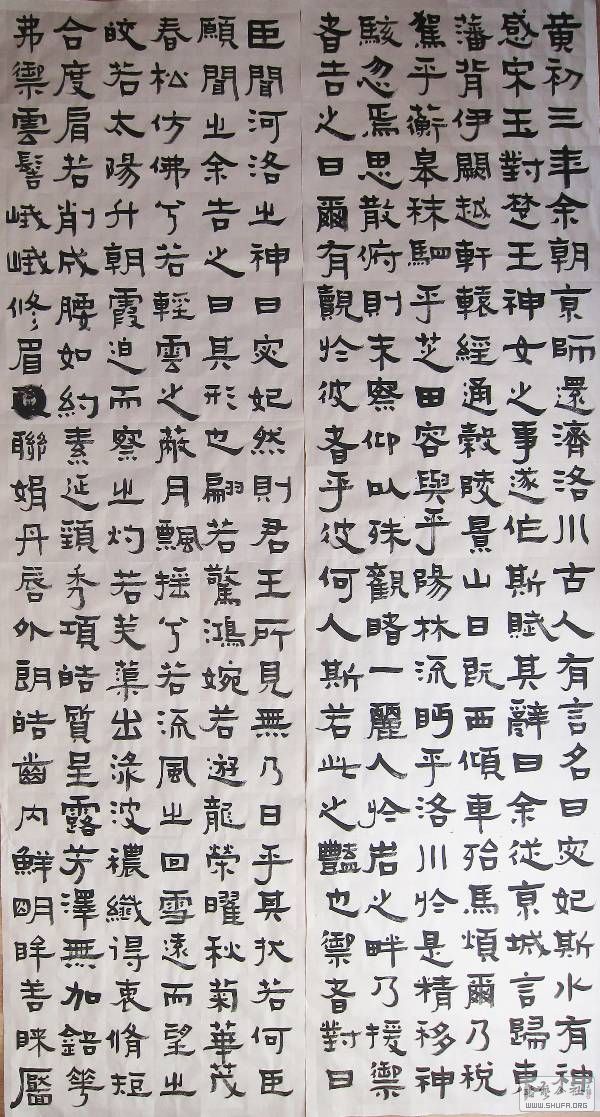 黃初三年余朝京師還濟洛川古人有言名曰宓妃斯水有神
感宋玉對楚王神女之事遂作斯賦其辭曰余從京城言歸東
藩背伊闕越軒轅經通轂陵景山日既西傾車殆馬煩爾乃稅
駕乎蘅皋秣駟乎芝田容與乎陽林流眄乎洛川於是精移神
駭忽焉思散俯則未察仰以殊觀睹一麗人於岩之畔乃援禦
者告之曰爾有覿於彼者乎彼何人斯若此之豔也禦者對曰
臣聞河洛之神曰宓妃然則君王所見無乃日乎其狀若何臣
願聞之余告之曰其形也翩若驚鴻婉若遊龍榮曜秋菊華茂
春松仿佛兮若輕雲之蔽月飄搖兮若流風之回雪遠而望之
皎若太陽升朝霞迫而察之灼若芙蕖出淥波穠纖得衷脩短
合度肩若削成腰如約素延頸秀項皓質呈露芳澤無加鉛華
弗禦雲髻峨峨修眉聯娟丹唇外朗皓齒內鮮明眸善睞靨
WWW.SHUFA.ORG